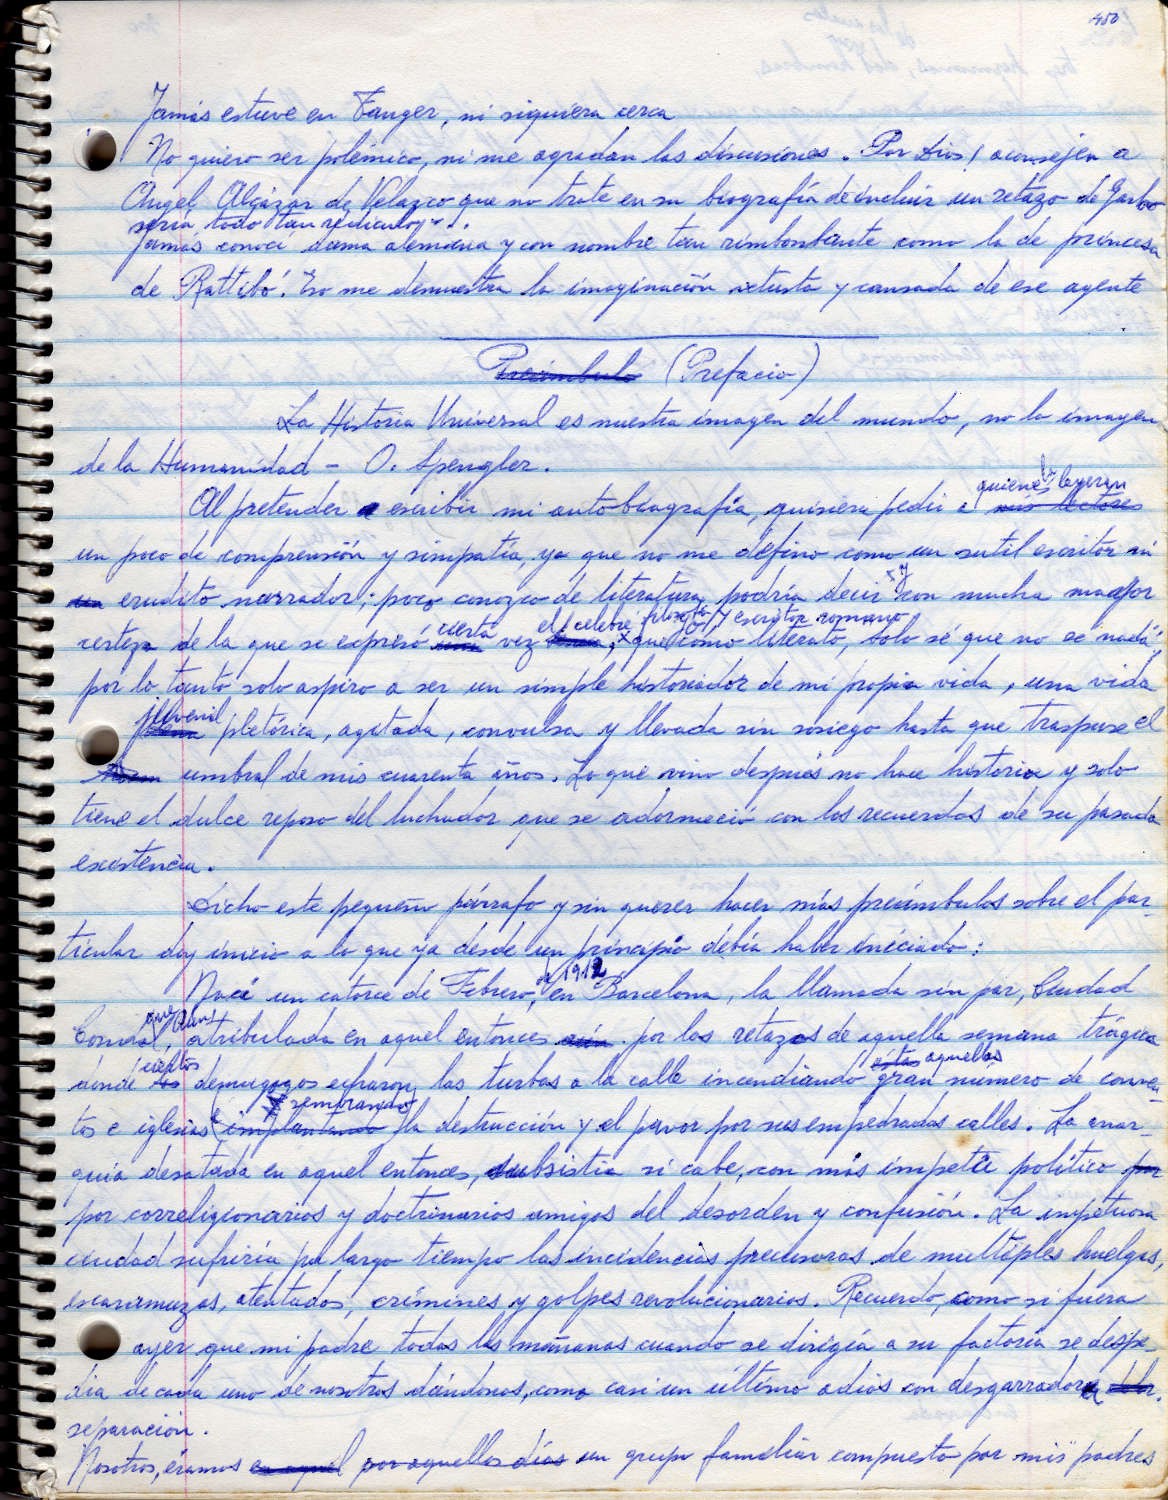 450
Jamás estuve en Tanger, ni siquiera cerca
No quiero ser polémico, ni me agradan las discusiones. Por Dios! aconsejen a
Angel Alcázar de Velazco que no trate en su biografía de incluir un retazo de Garbo
sería todo tan rídiculo...
Jamás conocí dama alemana y con nombre tan rimbonbante como la de princesa
de Rattibó. Eso me demuestra la imaginación vetusta y cansada de ese agente
Preámbulo (Prefacio)
La Historia Universal es nuestra imagen del mundo, no la imagen
de la Humanidad - O. Spengler.
quienes la leyeran
Al pretender a escribir mi autobiografía, quisiera pedir a mis lectores
un poco de comprensión y simpatia, ya que no me defino como un sutil escritor ni
un erudito narrador; poco conozco de literatura, podría decir y con mucha mayor
cierta el celebre filosofo y escritor romano
certeza de la que se expresó una vez que como literato, solo sé que no se nada,"
por lo tanto solo aspiro a ser un simple historiador de mi propia vida, una vida
juvenil
plena pletórica, agitada, convulsa y llevada sin sosiego hasta que traspuse el
umbral de mis cuarenta años. Lo que vino después no hace historia y solo
tiene el dulce reposo del luchador que se adormeció con los recuerdos de su pasada
existencia.
Dicho este pequeño párrafo y sin querer hacer más preámbulos sobre el par-
ticular doy inicio a lo que ya desde un principio debía haber iniciado:
de 1912
Nací un catorce de Febrero, en Barcelona, la llamada sin par, Ciudad
que aun
Condal, atribulada en aquel entonces aún por los retazos de aquella semana trágica
ciertos estas aquellas
dónde los demagogos echaron las turbas a la calle incendiando gran número de conven-
sembrando
tos e iglesias implantando la destrucción y el pavor por sus empedradas calles. La anar-
quía desatada en aquel entonces, subsistia si cabe, con más impetú político por
por correligionarios y doctrinarios amigos del desorden y confusión. La impetuosa
ciudad sufriría por largo tiempo las incidencias precursoras de multiples huelgas,
escaramuzas, atentados, crímines y golpes revolucionarios. Recuerdo, como si fuera
ayer que mi padre todas las mañanas cuando se dirigía a su factoría se despe-
dia de cada uno de nosotros dándonos, como casi un último adiós con desgarradora dolor.
separación.
Nosotros, éramos en aquel por aquellos días un grupo familiar compuesto por mis padres